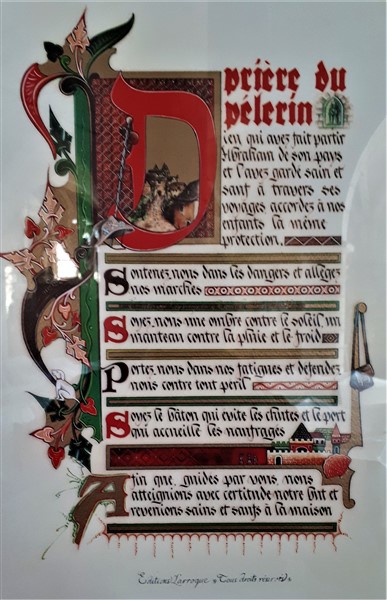 prière du
pélerin
Dieu qui avez fait partir
Abraham de son pays
et l'avez gardé sain et
sauf à travers ses
voyages accordez à nos
enfants la même
protection.
Soutenez.nous dans les dangers et allégez
nos marches
Soyez.nous une ombre contre le soleil, un
manteau contre la pluie et le froid
Portez.nous dans nos fatigues et défendez
nous contre tout péril
Soyez le bâton qui évite les chutes et le port
qui accueille les naufragés
Afin que, guidés par vous, nous
atteignions avec certitude notre but et
revenions sains et saufs à la maison
Editions Larroque Tous droits réservés